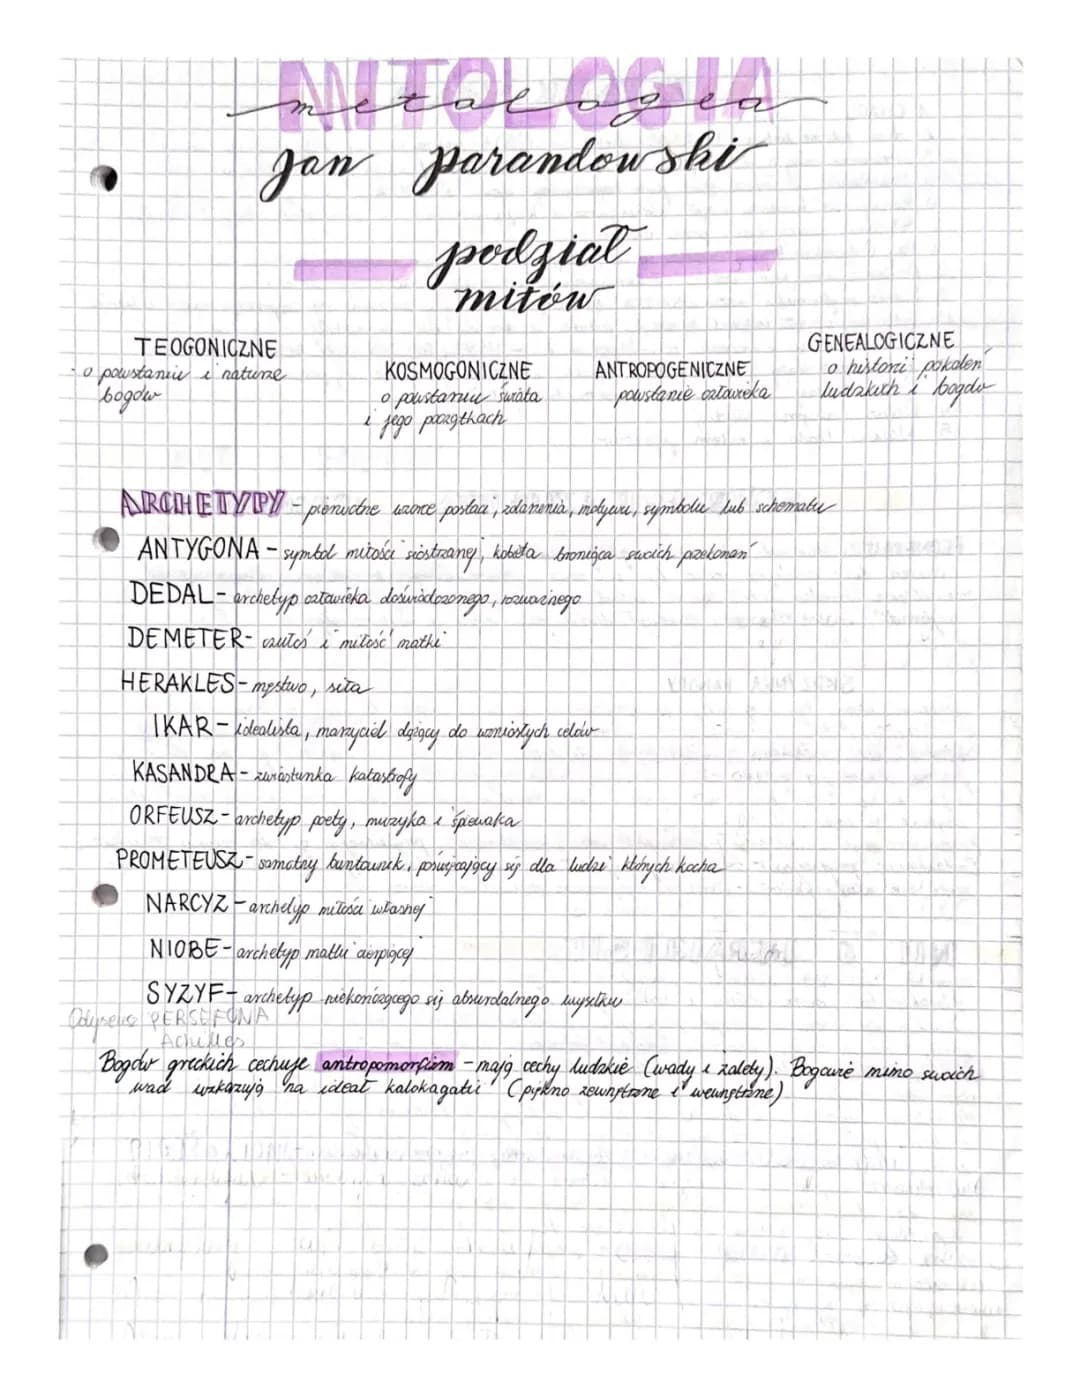 MITOLOGIA
mitologia
Jan Parandowski
podział
mitów
TEOGONICZNE
- o powstaniu i naturze
bogów
KOSMOGONICZNE
o powstaniu świata
i jego początkach
ANTROPOGENICZNE
powstanie człowieka
GENEALOGICZNE
o historii pokoleń
ludzkich i bogów
ARCHETYPY - pierwotne wzorce postaci, zdarzenia, motywu, symbolu lub schematu
ANTYGONA - symbol miłości siostrzanej, kobieta broniąca swoich przekonań
DEDAL - archetyp człowieka doświadczonego, rozważnego
DEMETER - czułość i miłość matki
HERAKLES - męstwo, siła
IKAR - idealista, marzyciel dążący do wzniosłych celów
KASANDRA - zwiastunka katastrofy
ORFEUSZ - archetyp poety, muzyka i śpiewaka
PROMETEUSZ - samotny buntownik, poświęcający się dla ludzi których kocha
NARCYZ - archetyp miłości własnej
NIOBE - archetyp matki cierpiącej
SYZYF - archetyp niekończącego się absurdalnego wysiłku
Odyseusz PERSEFONA
Achilles
Bogów greckich cechuje antropomorfizm - mają cechy ludzkie (wady i zalety). Bogowie mimo swoich
wad wskazują na ideał kalokagatii (piękno zewnętrzne i wewnętrzne)